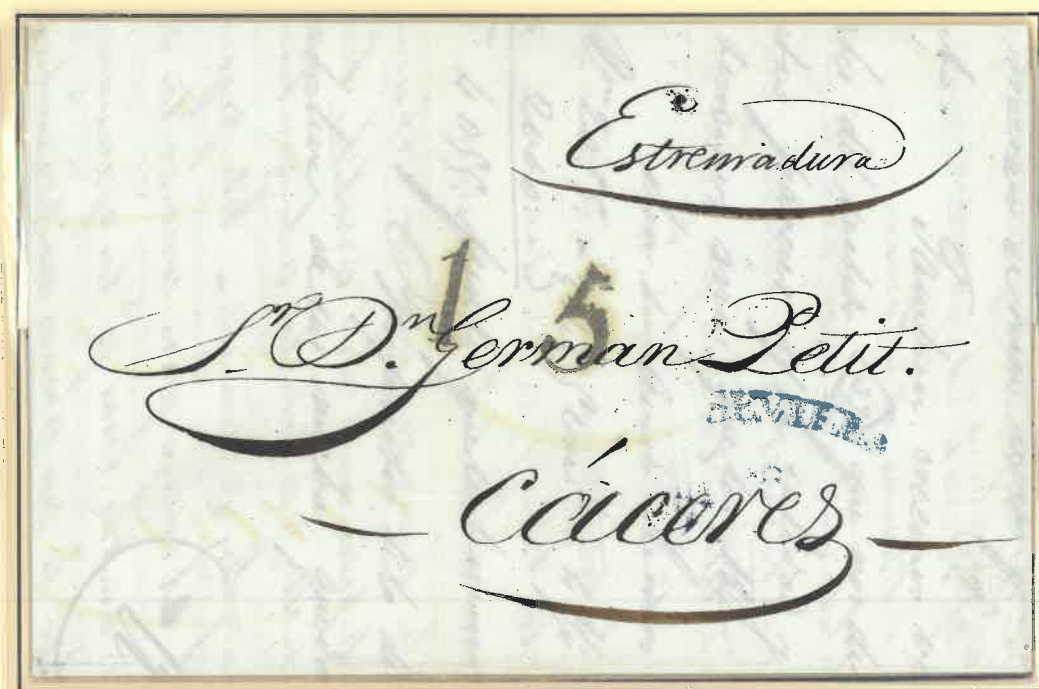 Estremadura
15
S.or D.n German Petit.
Cáceres